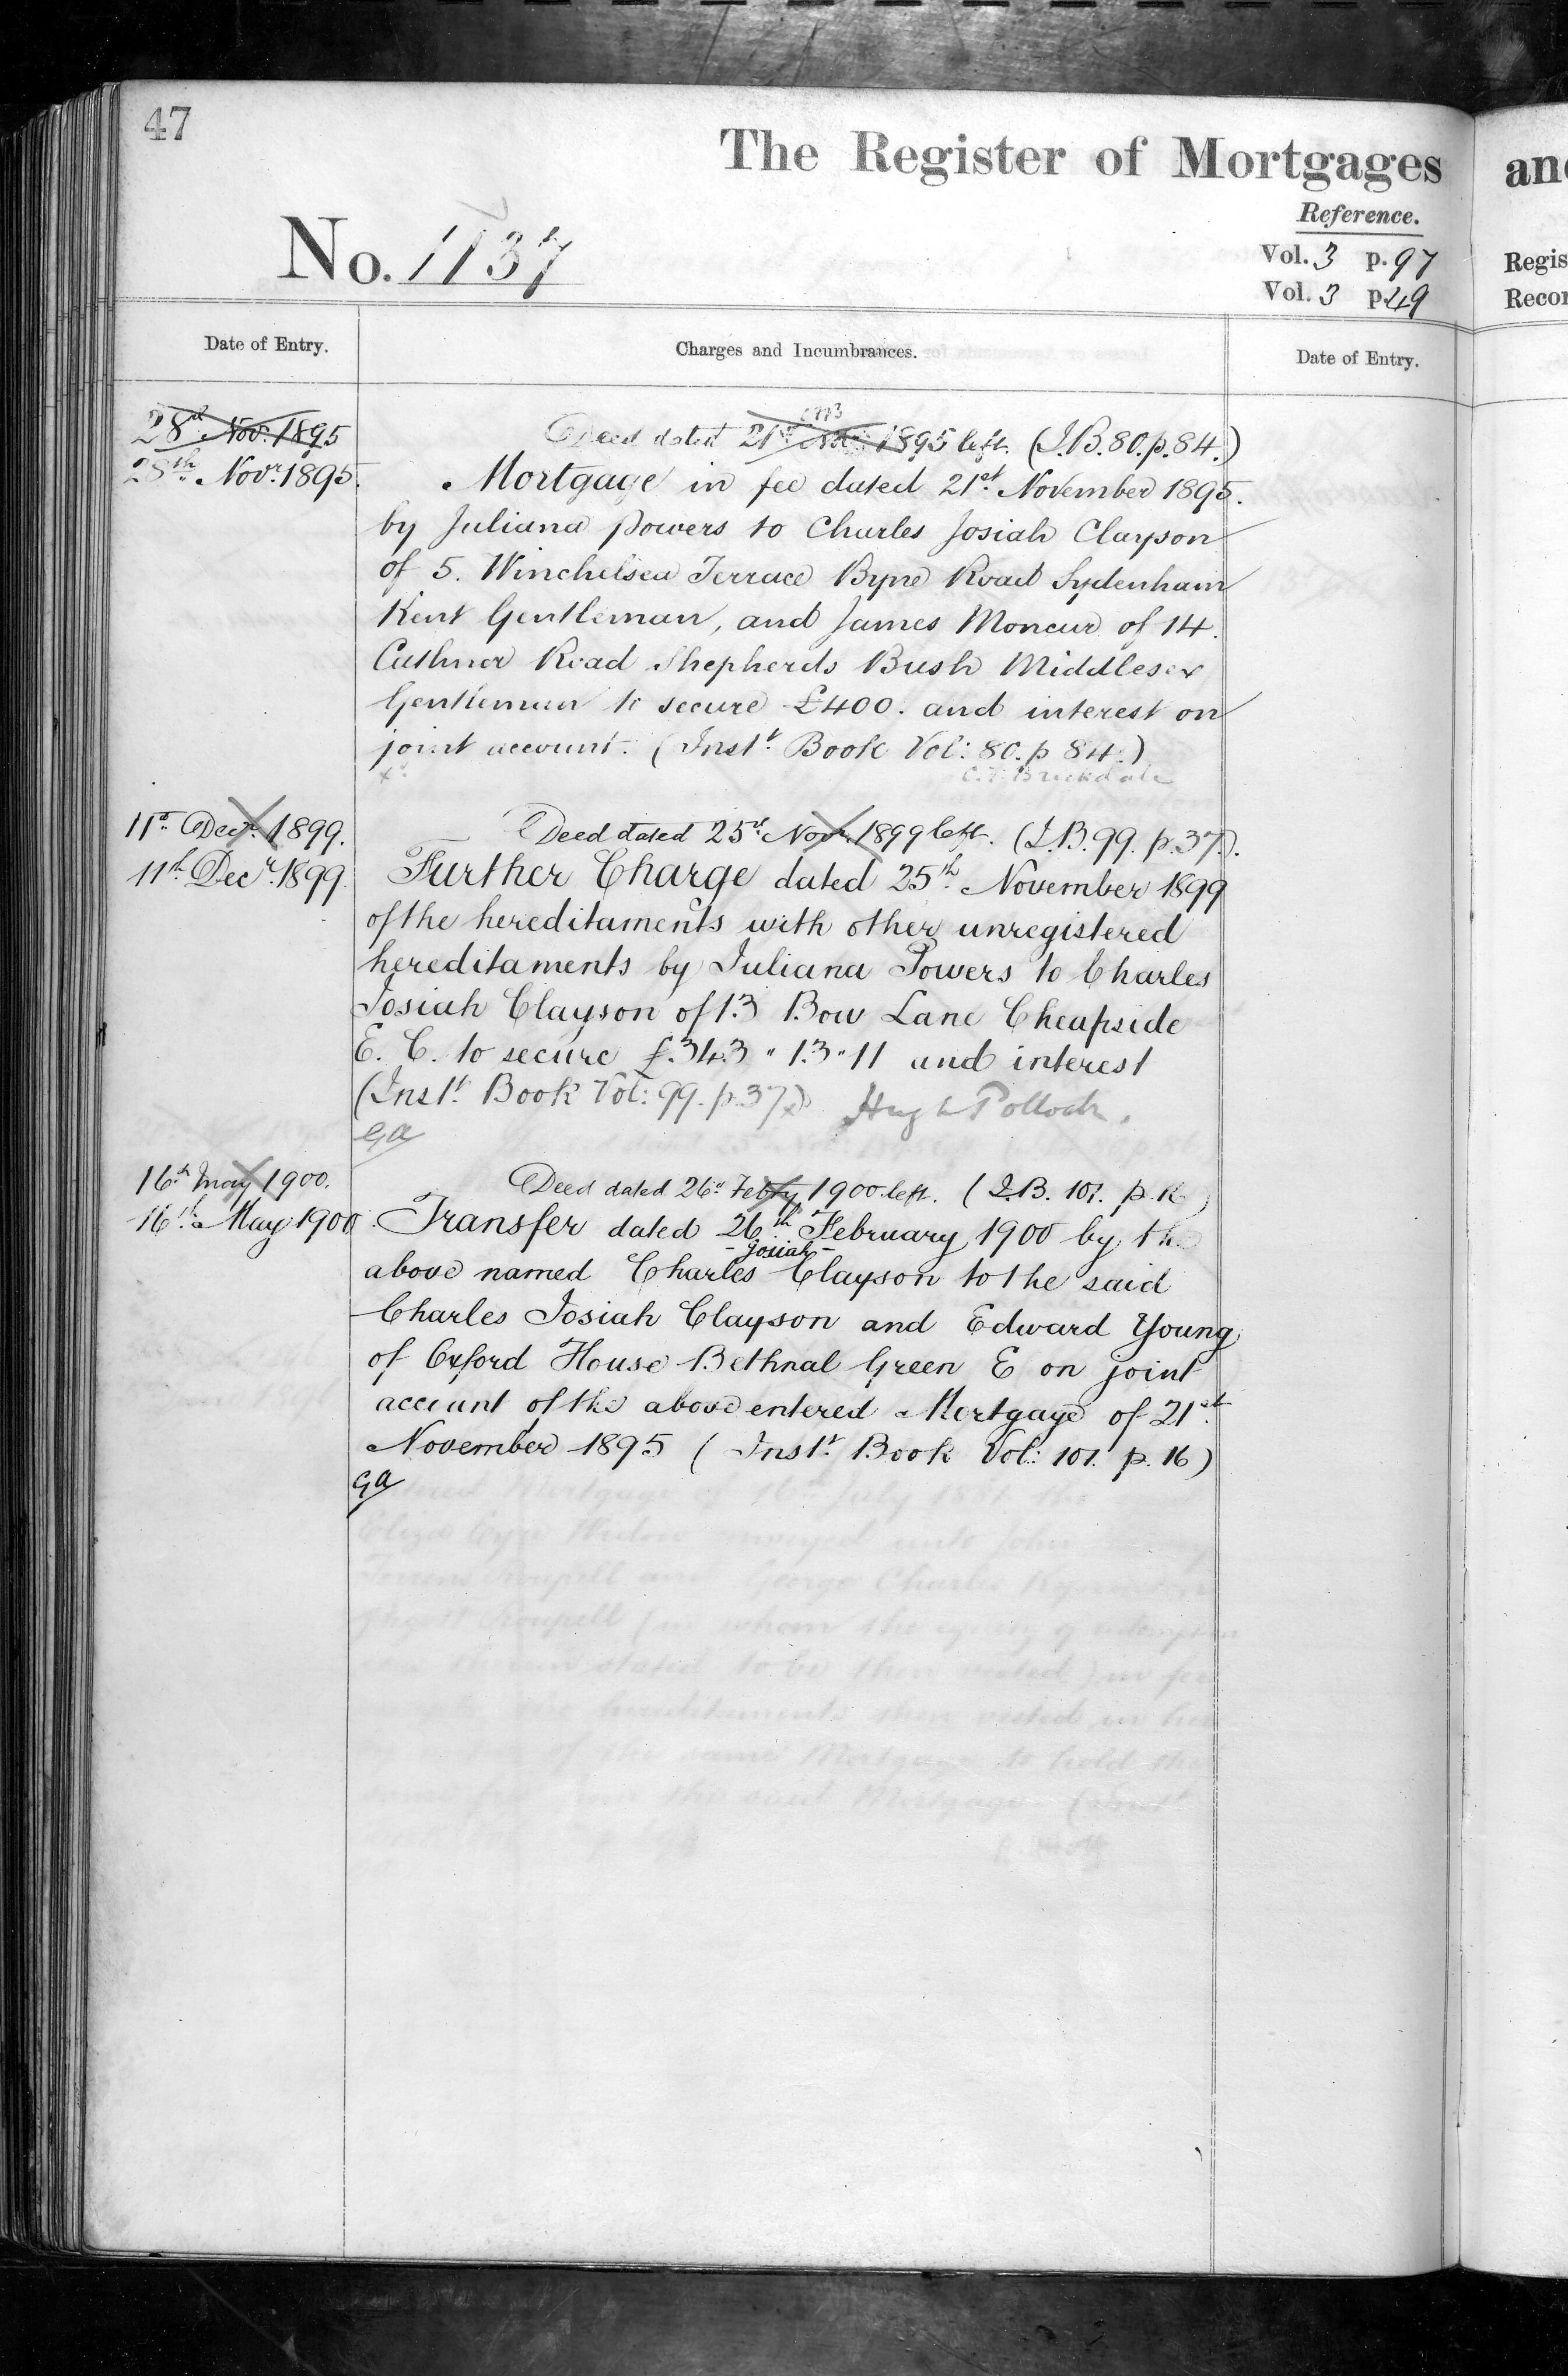 47
The Register of Mortgages
Reference.
No. 1137
Vol. 3 p. 97
Vol. 3 p. 49
Date of Entry.
Charges and Incumbrances.
Date of Entry.
28th Novr. 1895
Deed dated 21st Novr. 1895 left. (I.B. 80. p. 84.)
28th Novr. 1895.
Mortgage in fee dated 21st November 1895.
by Juliana Powers to Charles Josiah Clayson
of 5. Winchelsea Terrace Byne Road Sydenham
Kent Gentleman, and James Moncur of 14.
Cathnor Road Shepherds Bush Middlesex
Gentleman to secure £400. and interest on
joint account. (Inst. Book Vol: 80. p 84.)
C.F. Brickdale
11th Decr. 1899.
Deed dated 25th Novr. 1899 left. (I.B. 99. p. 37.).
11th Decr. 1899.
Further Charge dated 25th November 1899
of the hereditaments with other unregistered
hereditaments by Juliana Powers to Charles
Josiah Clayson of 13 Bow Lane Cheapside
E. C. to secure £.343 " 13 " 11 and interest
(Inst. Book Vol: 99. p. 37.) Hugh Pollock.
GA
16th May 1900.
Deed dated 26th Febry. 1900 left. (I.B. 101. p. 16)
16th May 1900.
Transfer dated 26th February 1900 by the
- Josiah -
above named Charles Clayson to the said
Charles Josiah Clayson and Edward Young
of Oxford House Bethnal Green E on joint
account of the above entered Mortgage of 21st
November 1895 (Inst. Book Vol: 101. p. 16)
GA
Regis
Recor